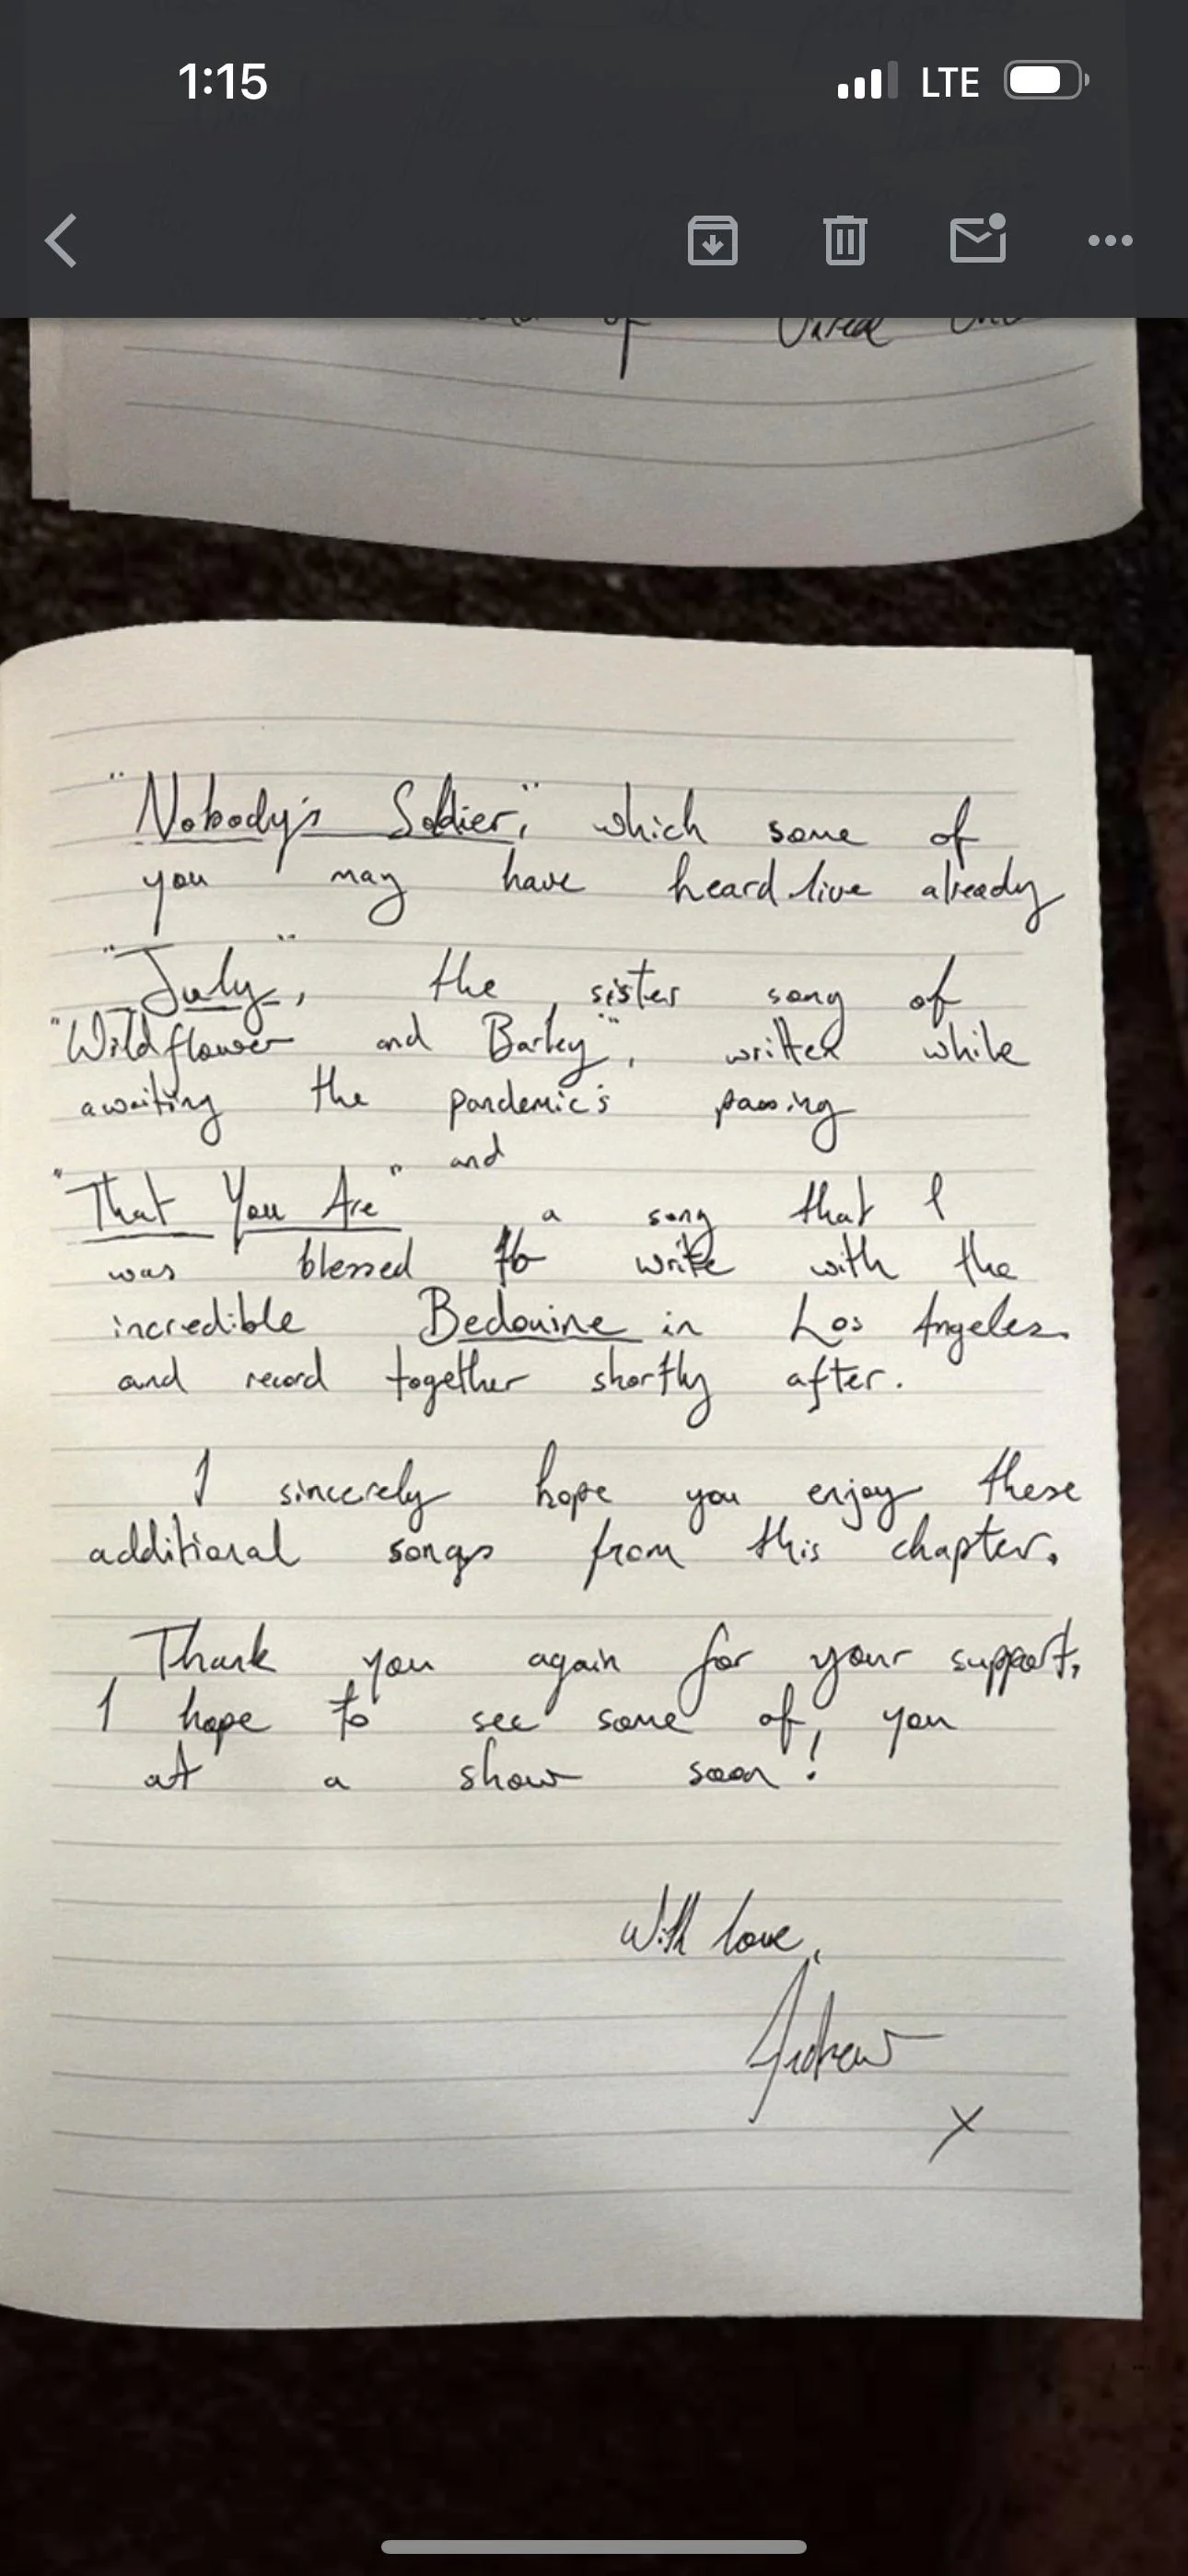 1:15
LTE
of Unreal
"Nobody's Soldier," which some of
you may have heard live already
"July", the sister song of
"Wildflower and Barley", written while
awaiting the pandemic's passing
and
"That You Are" a song that I
was blessed to write with the
incredible Bedouine in Los Angeles.
and record together shortly after.
I sincerely hope you enjoy these
additional songs from this chapter.
Thank you again for your support,
I hope to see some of you
at a show soon!
With love,
Andrew
x